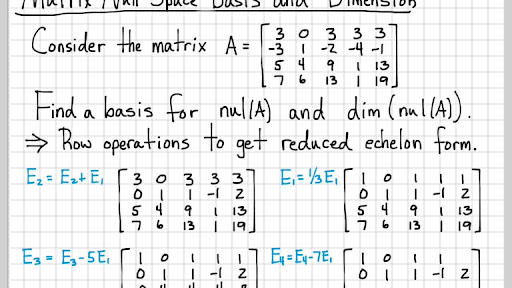 Matrix Null Space Basis and Dimension
Consider the matrix A = [3 0 3 3 3
-3 1 -2 -4 -1
5 4 9 1 13
7 6 13 1 19]
Find a basis for nul(A) and dim(nul(A)).
⇒ Row operations to get reduced echelon form.
E₂ = E₂ + E₁ [3 0 3 3 3 E₁ = 1/3 E₁ [1 0 1 1 1
0 1 1 -1 2 0 1 1 -1 2
5 4 9 1 13 5 4 9 1 13
7 6 13 1 19] 7 6 13 1 19]
E₃ = E₃ - 5E₁ [1 0 1 1 1 E₄ = E₄ - 7E₁ [1 0 1 1 1
0 1 1 -1 2 0 1 1 -1 2